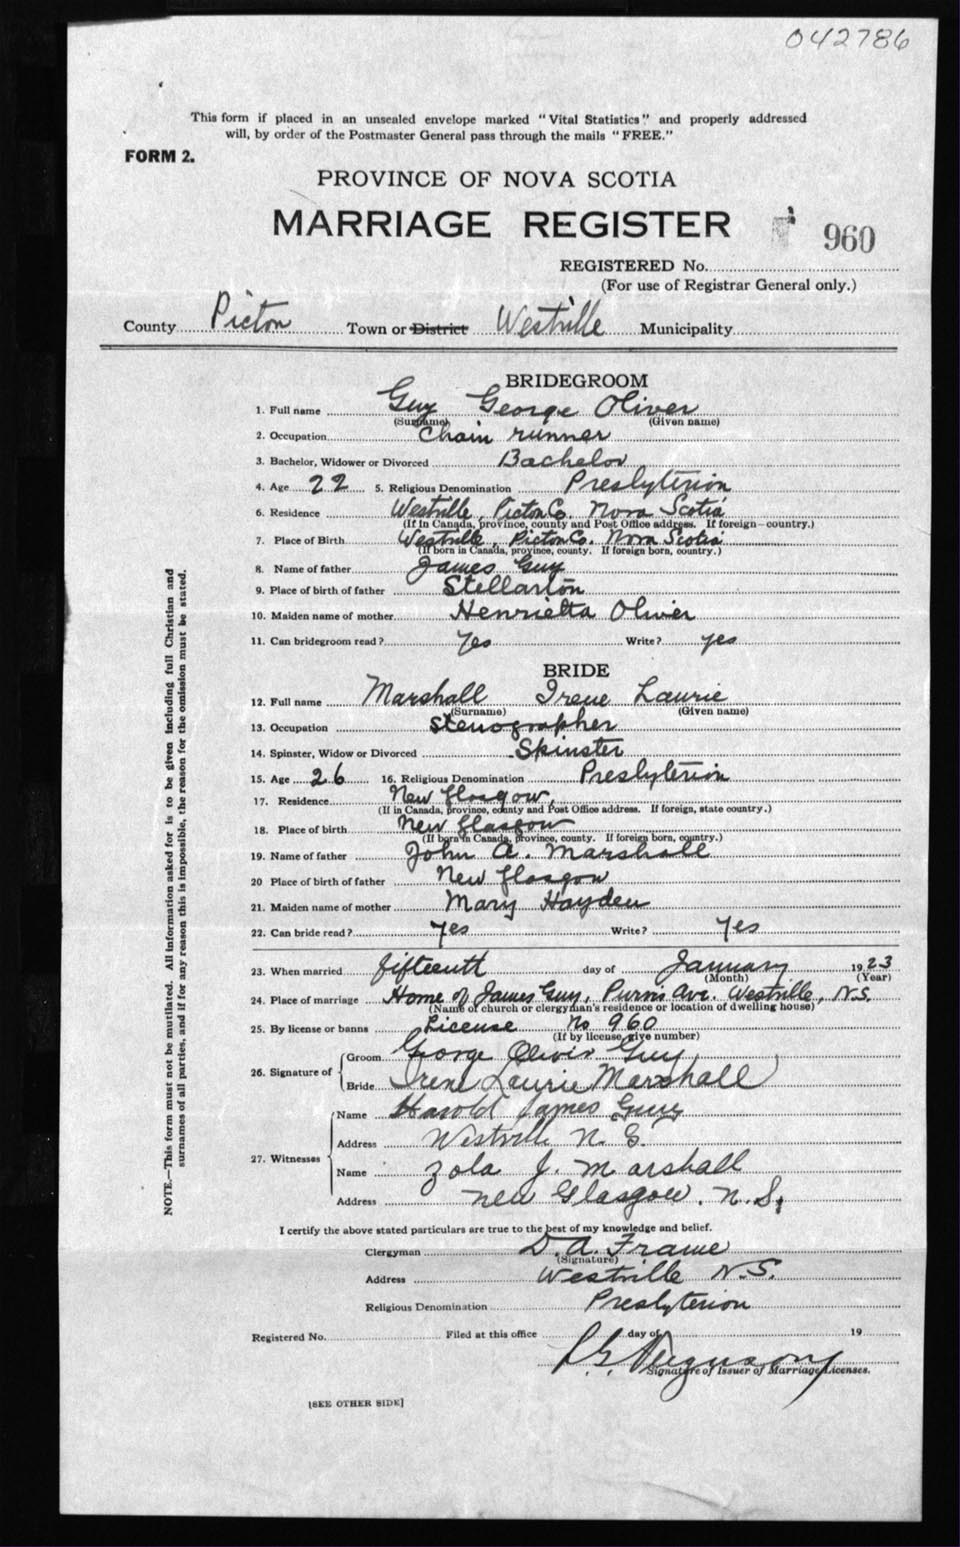 042786
This form if placed in an unsealed envelope marked "Vital Statistics" and properly addressed
will, by order of the Postmaster General pass through the mails "FREE."
FORM 2.
PROVINCE OF NOVA SCOTIA
MARRIAGE REGISTER
960
REGISTERED No.
(For use of Registrar General only.)
County Picton Town or District Westville Municipality
BRIDEGROOM
1. Full name Guy George Oliver
(Surname) (Given name)
2. Occupation Chain runner
3. Bachelor, Widower or Divorced Bachelor
4. Age 22 5. Religious Denomination Presbyterion
6. Residence Westville, Picton Co. Nova Scotia
(If in Canada, province, county and Post Office address. If foreign—country.)
7. Place of Birth Westville, Picton Co. Nova Scotia
(If born in Canada, province, county. If foreign born, country.)
8. Name of father James Guy
9. Place of birth of father Stellarton
10. Maiden name of mother Henrietta Oliver
11. Can bridegroom read? Yes Write? yes
BRIDE
12. Full name Marshall Irene Laurie
(Surname) (Given name)
13. Occupation Stenographer
14. Spinster, Widow or Divorced Spinster
15. Age 26 16. Religious Denomination Presbyterion
17. Residence New Glasgow,
(If in Canada, province, county and Post Office address. If foreign, state country.)
18. Place of birth New Glasgow
(If born in Canada, province, county. If foreign born, country.)
19. Name of father John A. Marshall
20 Place of birth of father New Glasgow
21. Maiden name of mother Mary Hayden
22. Can bride read? Yes Write? Yes
23. When married fifteenth day of January 1923
(Month) (Year)
24. Place of marriage Home of James Guy, Purvis Ave. Westville, N.S.
(Name of church or clergyman's residence or location of dwelling house)
25. By license or banns License No 960
(If by license, give number)
26. Signature of
Groom George Oliver Guy
Bride Irene Laurie Marshall
27. Witnesses
Name Harold James Guy
Address Westville N. S.
Name Zola J. Marshall
Address New Glasgow, N.S.
I certify the above stated particulars are true to the best of my knowledge and belief.
Clergyman D. A. Frame
(Signature)
Address Westville N.S.
Religious Denomination Presbyterion
Registered No. Filed at this office day of 19
Ferguson
Signature of Issuer of Marriage Licenses.
[SEE OTHER SIDE]
NOTE.—This form must not be mutilated. All information asked for is to be given including full Christian and
surnames of all parties, and if for any reason this is impossible, the reason for the omission must be stated.